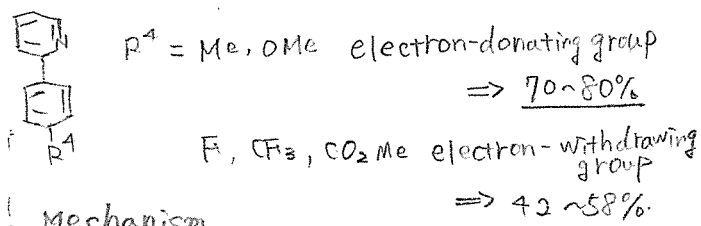 N R⁴ = Me, OMe electron-donating group
=> 70~80%
R⁴ F, CF₃, CO₂Me electron-withdrawing
group
=> 42~58%.
Mechanism